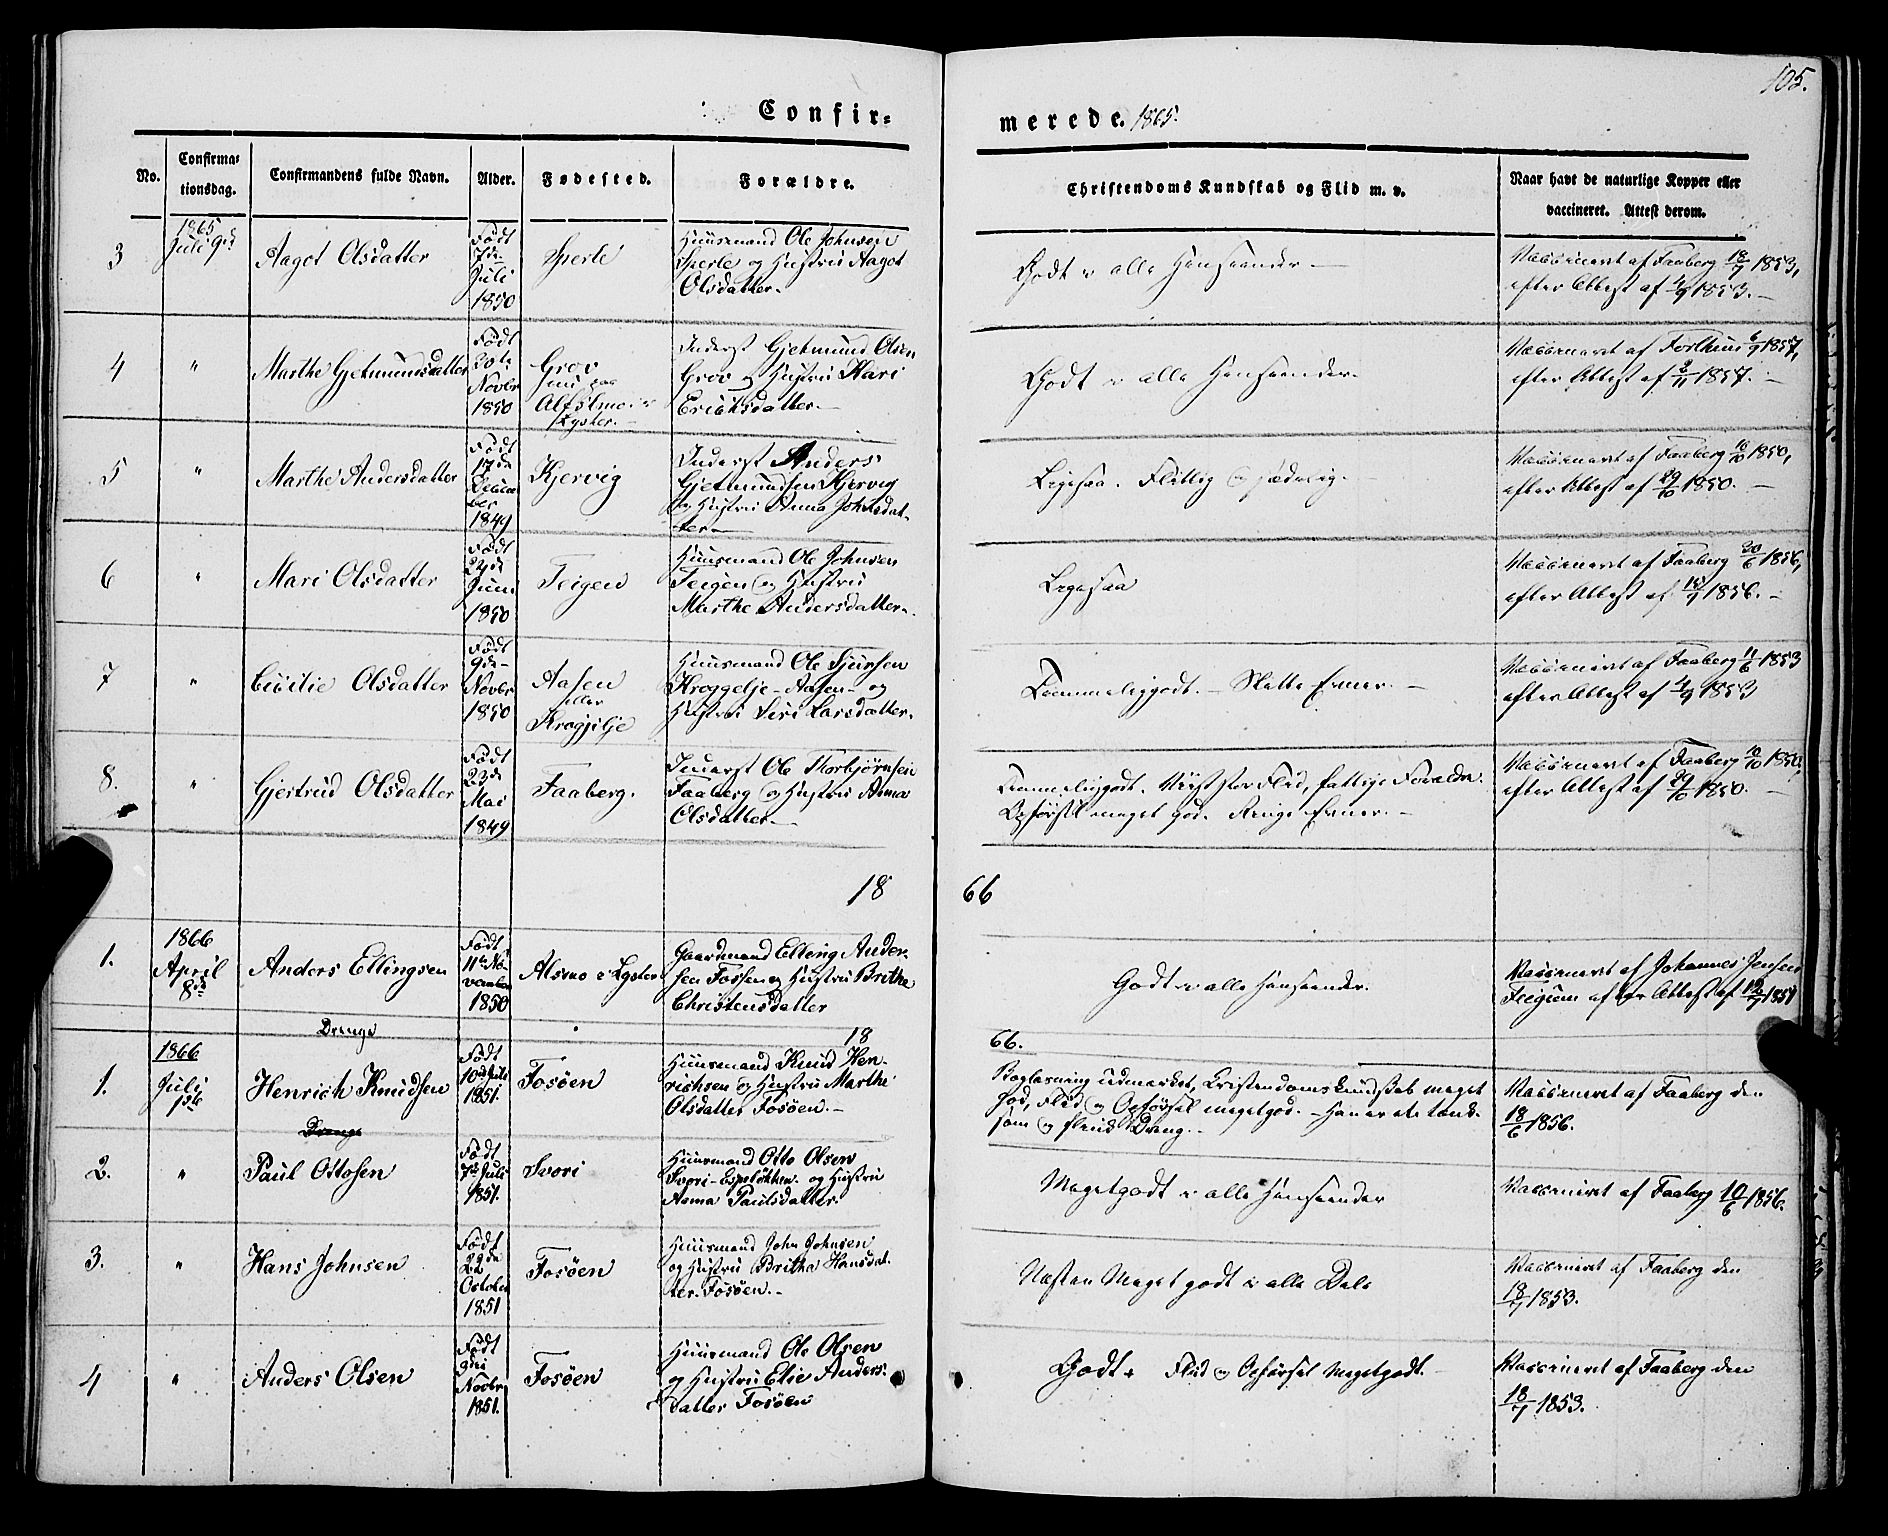 105.
Confir= merede. 1865.
No. Confirma= tionsdag. Confirmandens fulde Navn. Alder. Fødested. Forældre. Christendoms Kundskab og Flid m. v. Naar havt de naturlige Kopper eller vaccineret. Attest derom.
3
1865
Juli 9de
Aagot Olsdatter
Født
7de
Juli
1850
Sperle
Huusmand Ole Johnsen
Sperle og Hustru Aagot
Olsdatter.
Godt i alle Henseender. —
Vaccineret af Faaberg 18/7 1853,
efter Attest af 4/9 1853. —
4
"
Marthe Gjetmundsdatter
Født
30te
Novbr
1850
Grov
Alfsmo i
Lyster. —
Inderst Gjetmund Olsen
Grov og Hustru Kari
Erichsdatter. —
Godt i alle Henseender.
Vaccineret af Forthun 6/9 1857,
efter Attest af 8/11 1857. —
5
"
Marthe Andersdatter
Født
17de
Decem
ber
1849
Kjervig
Inderst Anders
Gjetmundsen Kjervig
og Hustru Anna Johnsdat-
ter —
Ligesaa. Flittig og sædelig. —
Vaccineret af Faaberg 10/10 1850,
efter Attest af 29/10 1850. —
6
"
Mari Olsdatter
Født
24de
Juni
1850
Teigen
Huusmand Ole Johnsen
Teigen og Hustru
Marthe Andersdatter.
Ligesaa
Vaccineret af Faaberg 20/6 1856,
efter Attest af 15/7 1856. —
7
"
Cicilie Olsdatter
Født
9de
Novbr
1850
Aasen
eller
Krogjilje
Huusmand Ole Sjursen
Kroggelje-Aasen- og
Hustru Siri Larsdatter.
Temmeliggodt. — Slette Evner. —
Vaccineret af Faaberg 11/6 1853
efter Attest af 4/9 1853
8.
"
Gjertrud Olsdatter
Født
23de
Mai
1849
Faaberg.
Inderst Ole Thorbjørnsen
Faaberg og Hustru Anna
Olsdatter. —
Temmeliggodt. Flid, fattige Forældre.
Opførsel meget god. Ringe Evner. —
Vaccineret af Faaberg 10/10 1850,
efter Attest af 29/10 1850. —
18 66
1.
1866
April
8de
Anders Ellingsen
Født
11te No-
vember
1850
Alsmo i Lyster
Gaardmand Elling Ander-
sen Fossen og Hustru Brithe
Christensdatter
Godt i alle Henseender.
Vaccineret af Johannes Jensen
Teigum efter Attest af 12/7 1851
Drenge
18 66.
1.
1866
Juli
1ste
Henrich Knudsen
Født
10de Juli
1851.
Fosøen
Huusmand Knud Hen-
richsen og Hustru Marthe
Olsdatter Fosøen. —
Boglæsning udmærket, Kristendomskundskab meget
god, Flid og Opførsel megetgod. — Han er
som og flink Dreng. —
Vaccineret af Faaberg den
18/6 1856.
Drenge
2.
"
Paul Ottosen
Født
7de Juli
1851.
Svori
Huusmand Otto Olsen
Svori-Espeløkken og Hustru
Anna Paulsdatter
Megetgodt i alle Henseender
Vaccineret af Faaberg 10/6 1856.
3.
"
Hans Johnsen
Født
22de
October
1851
Fosøen
Huusmand John Johnsen
og Hustru Britha Hansdat-
ter Fosøen. —
Næsten Meget godt i alle Dele
Vaccineret af Faaberg den
18/7 1853.
4
"
Anders Olsen
Født
9de
Novbr
1851.
Fosøen
Huusmand Ole Olsen
og Hustru Elie Anders-
datter Fosøen
Godt. Flid og Opførsel Megetgodt. —
Vaccineret af Faaberg den
18/7 1853.